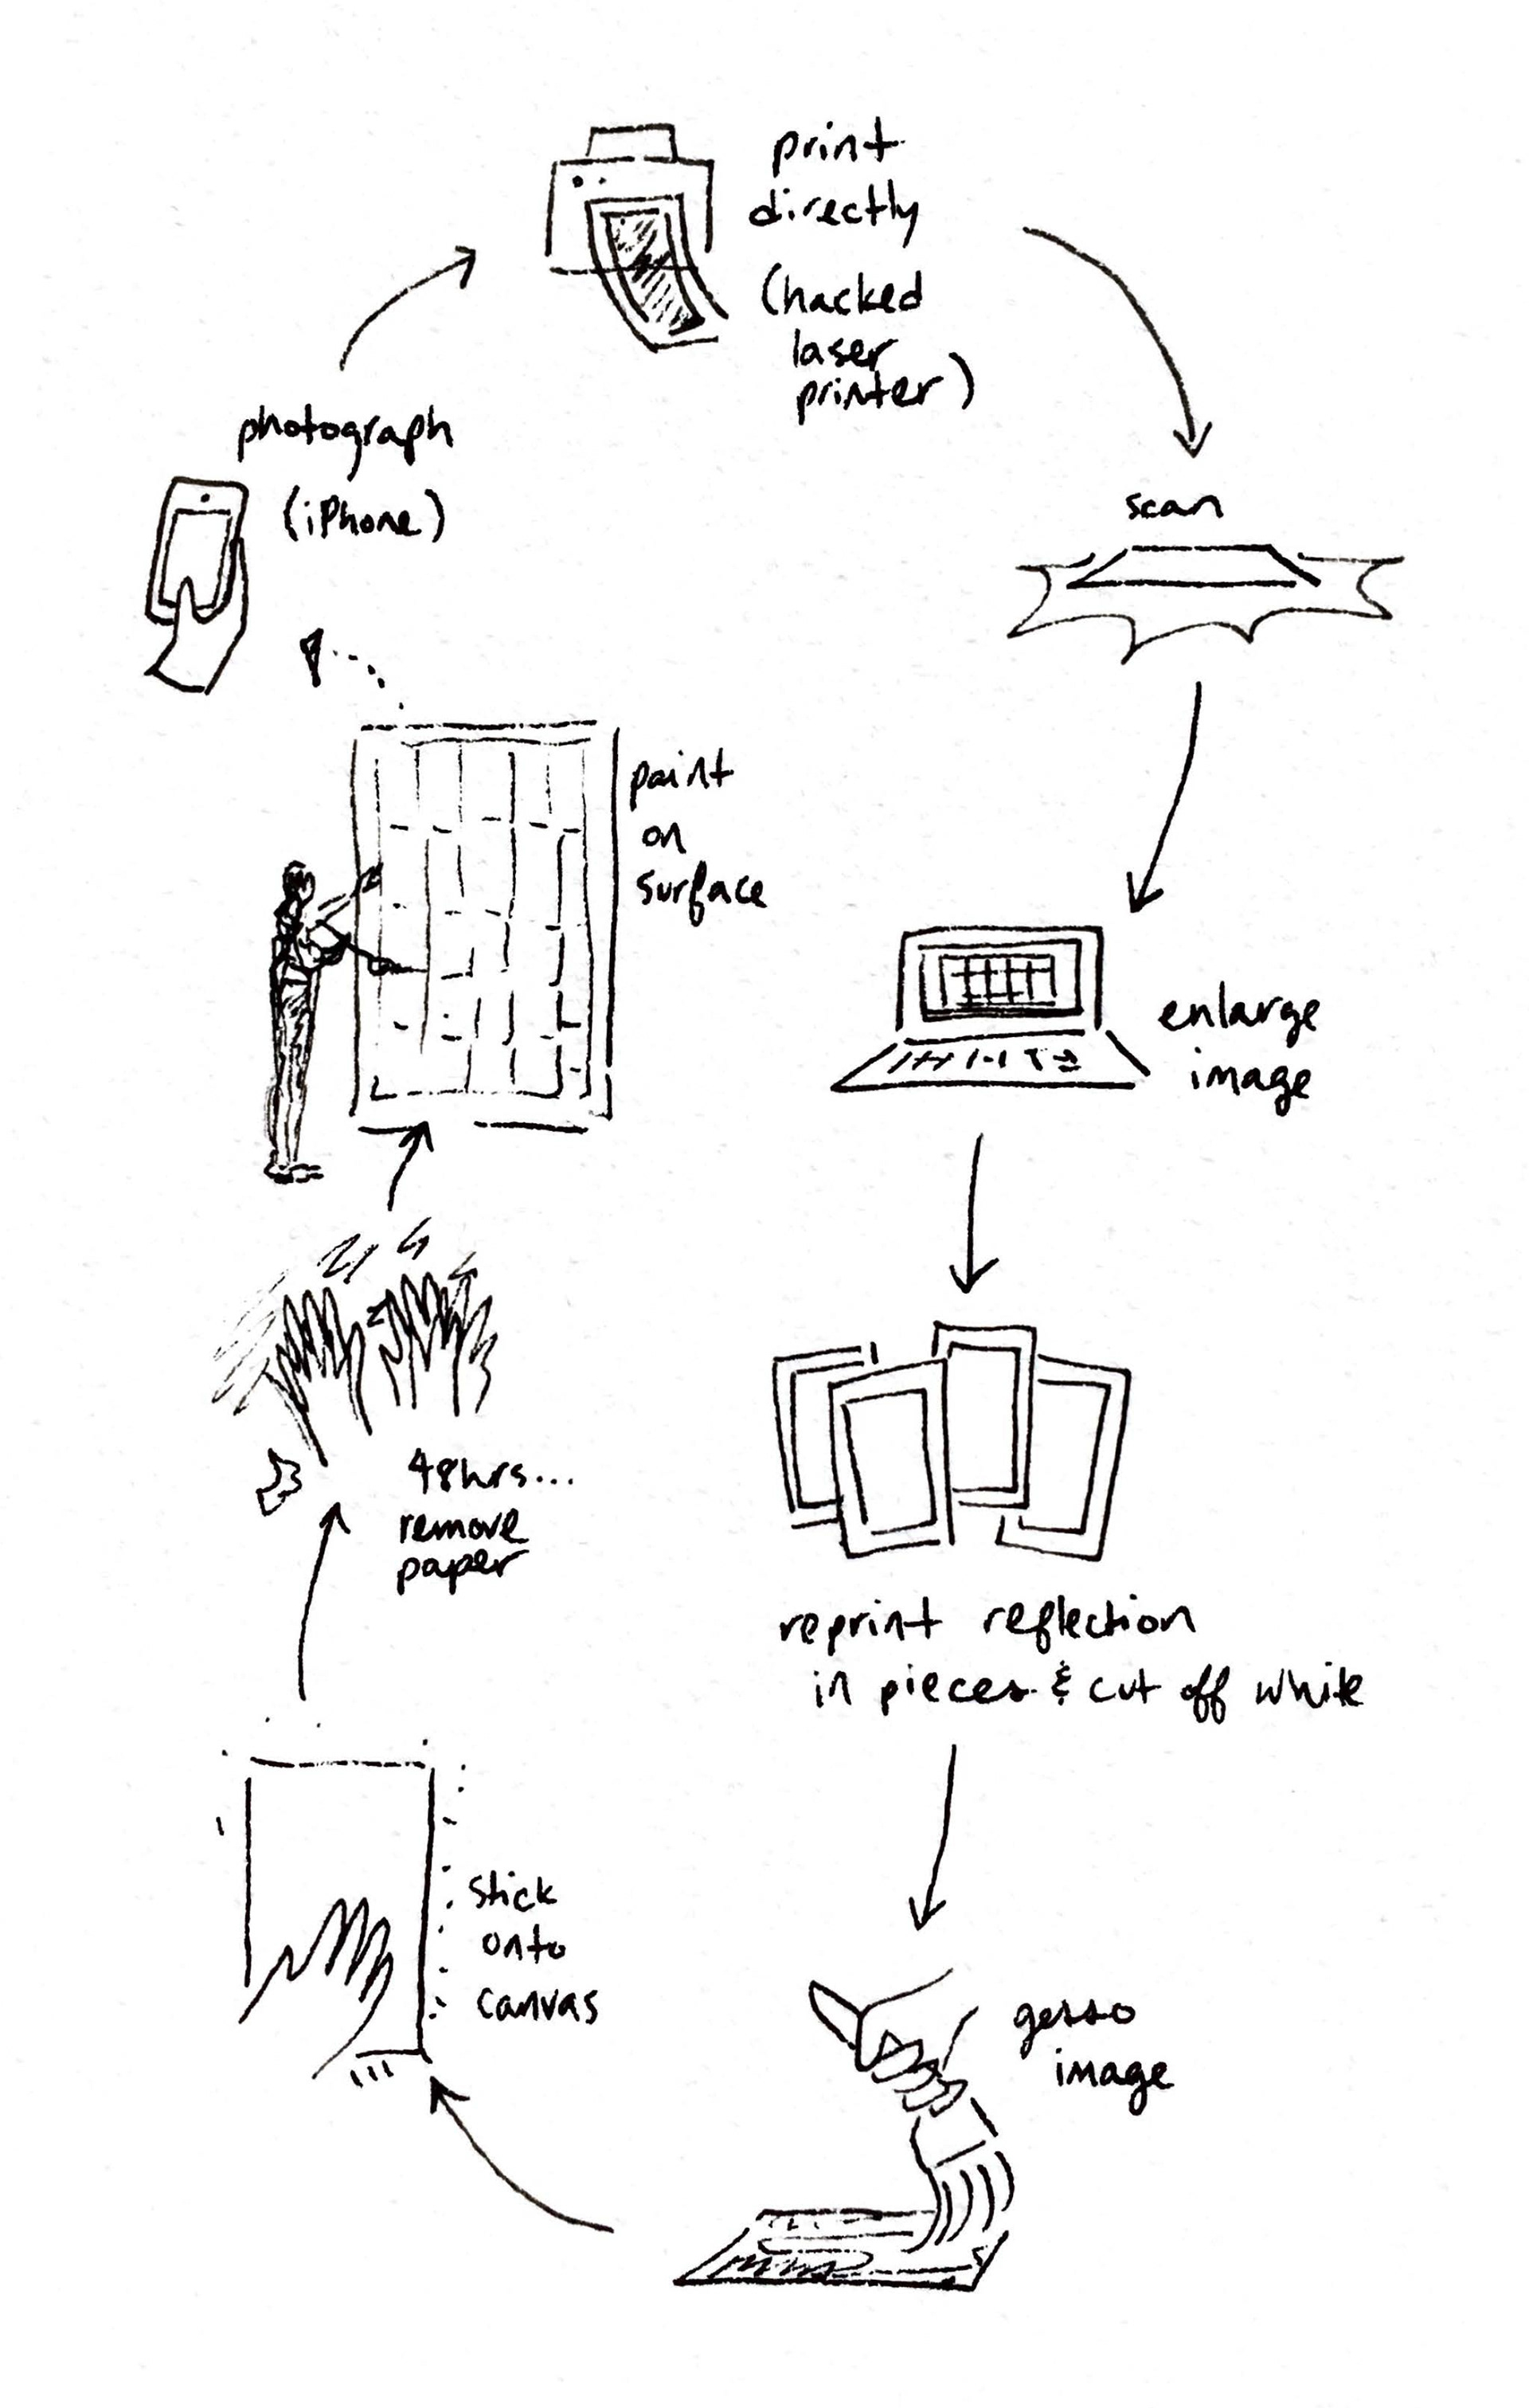 print
directly
(hacked
laser
printer)
photograph
(iPhone)
scan
paint
on
surface
enlarge
image
48hrs...
remove
paper
reprint reflection
in pieces & cut off white
stick
onto
canvas
gesso
image